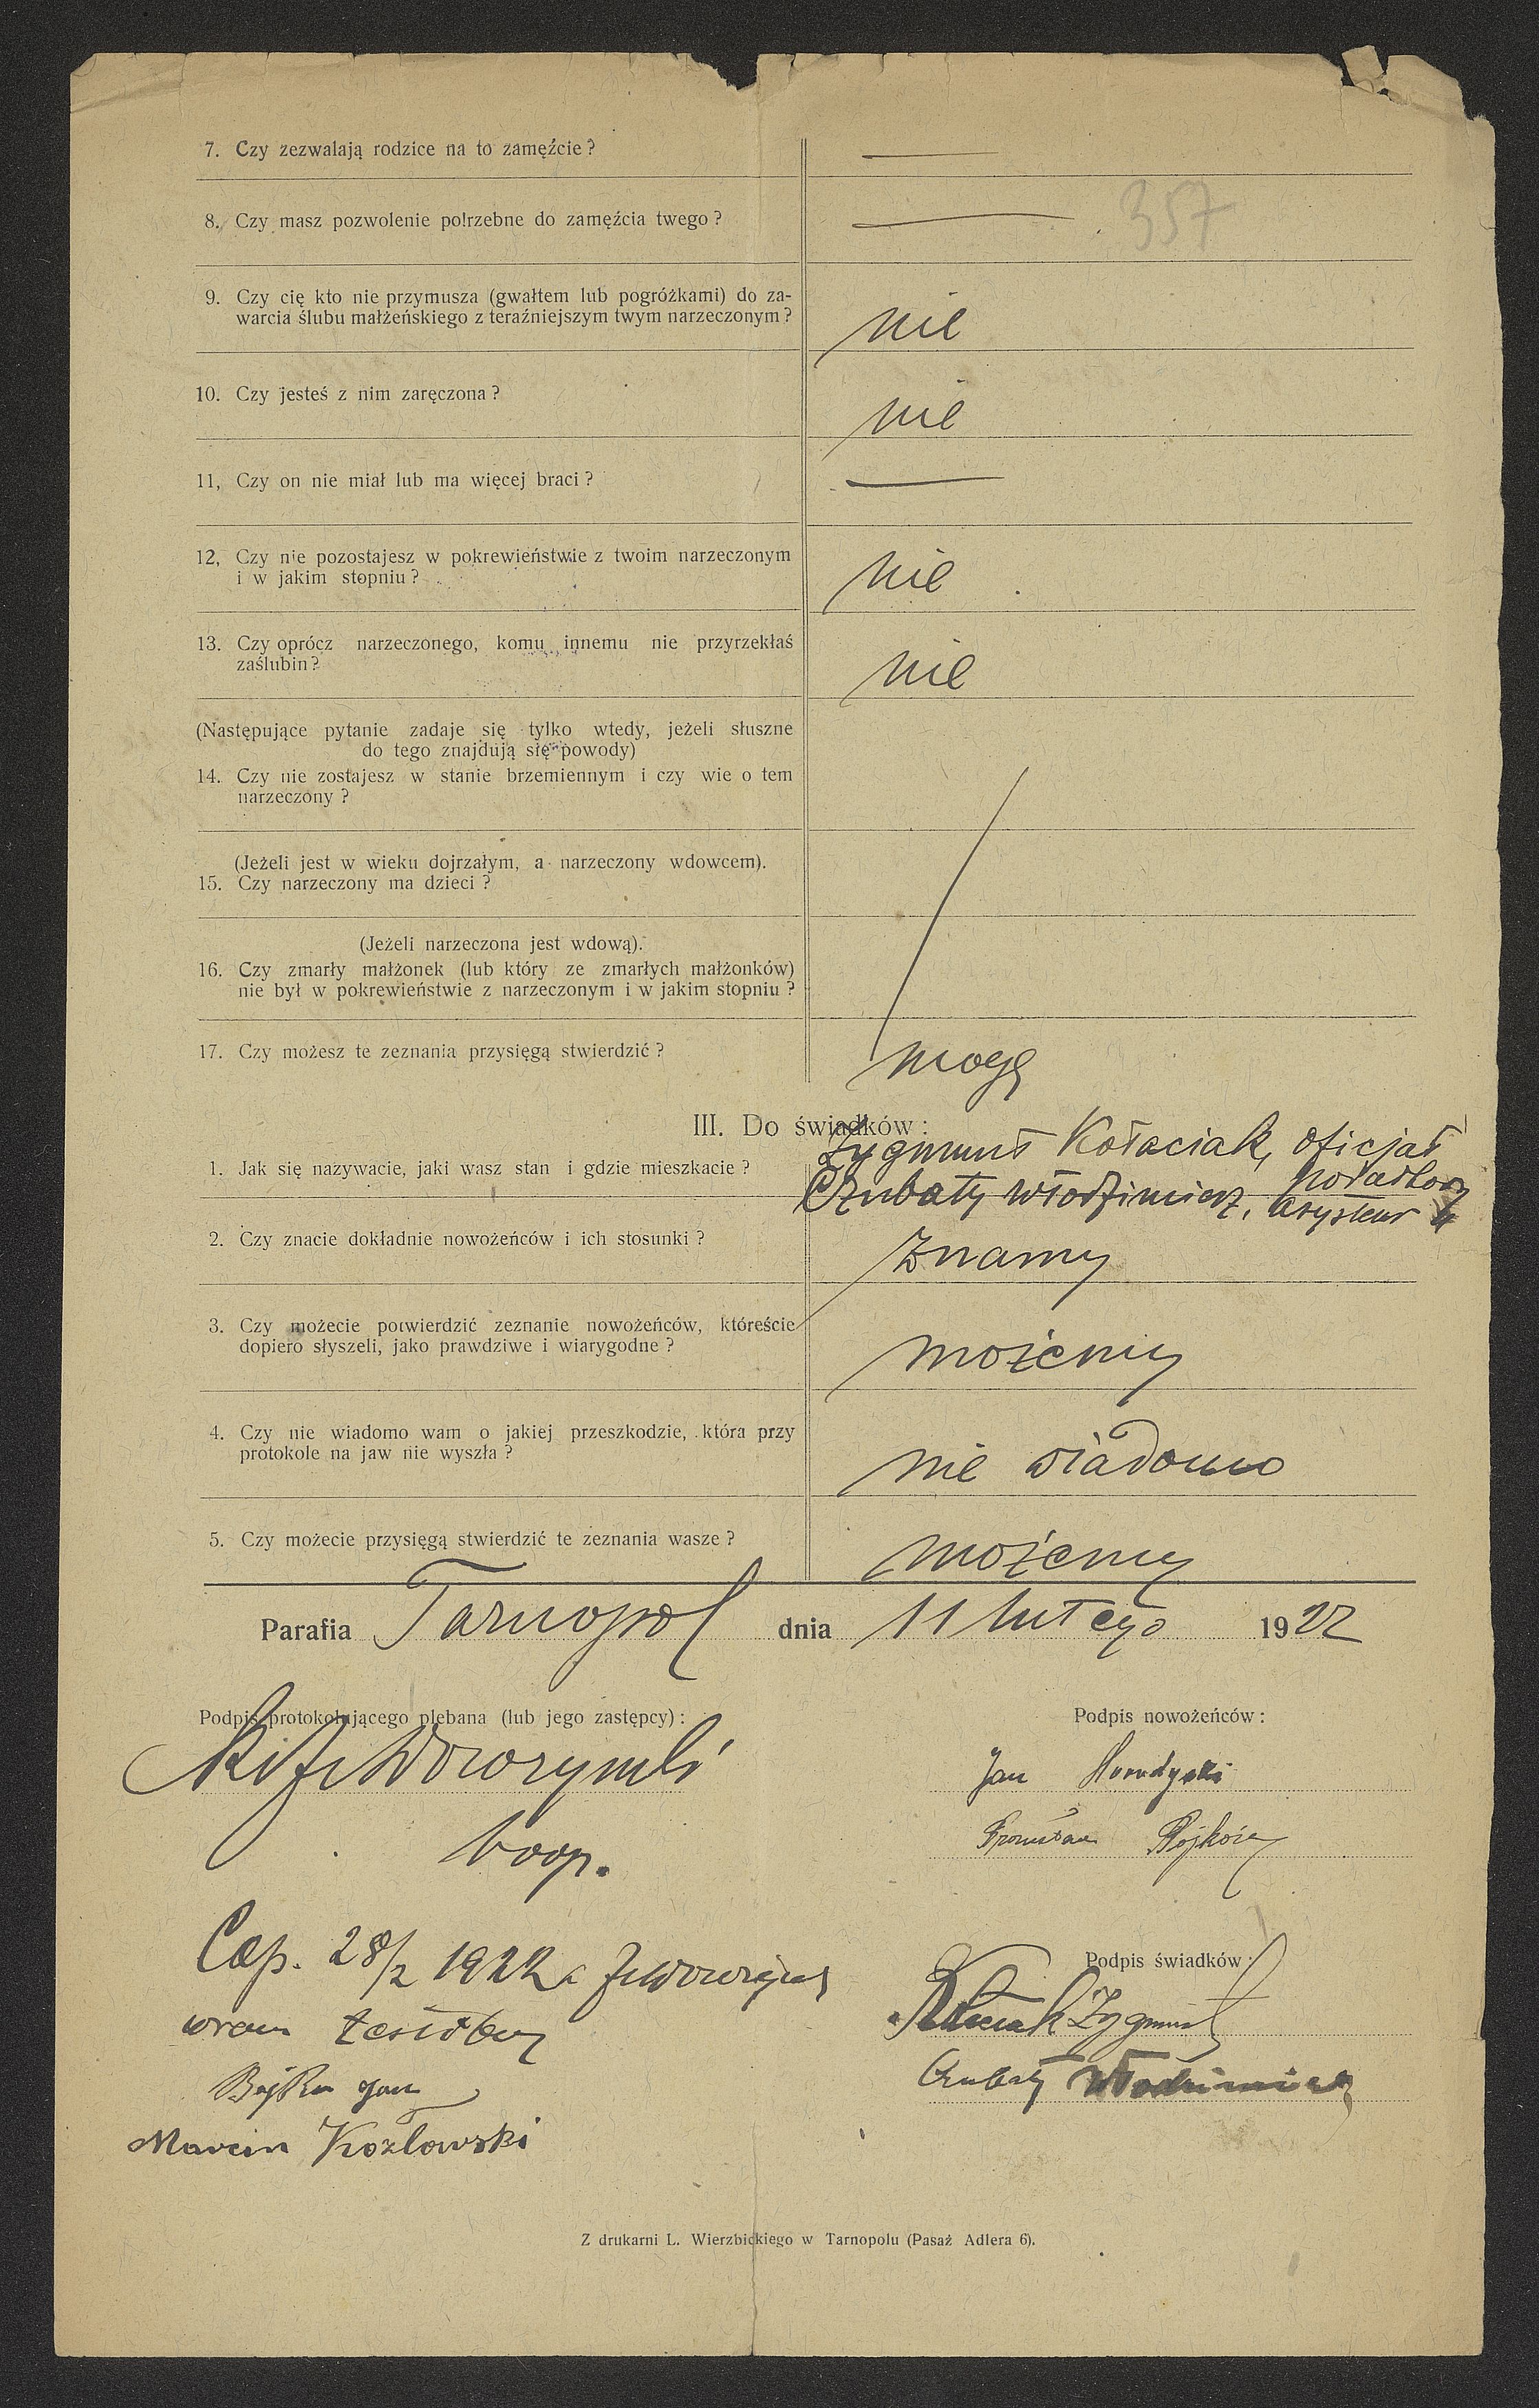 7. Czy zezwalają rodzice na to zamęźcie?
8. Czy masz pozwolenie potrzebne do zamęźcia twego?
357
9. Czy cię kto nie przymusza (gwałtem lub pogróżkami) do za-
warcia ślubu małżeńskiego z teraźniejszym twym narzeczonym?
nie
10. Czy jesteś z nim zaręczona?
nie
11, Czy on nie miał lub ma więcej braci?
12, Czy nie pozostajesz w pokrewieństwie z twoim narzeczonym
i w jakim stopniu?
nie
13. Czy oprócz narzeczonego, komu innemu nie przyrzekłaś
zaślubin?
nie
(Następujące pytanie zadaje się tylko wtedy, jeżeli słuszne
do tego znajdują się powody)
14. Czy nie zostajesz w stanie brzemiennym i czy wie o tem
narzeczony?
(Jeżeli jest w wieku dojrzałym, a narzeczony wdowcem).
15. Czy narzeczony ma dzieci?
(Jeżeli narzeczona jest wdową).
16. Czy zmarły małżonek (lub który ze zmarłych małżonków)
nie był w pokrewieństwie z narzeczonym i w jakim stopniu?
17. Czy możesz te zeznania przysięgą stwierdzić?
mogę
III. Do świadków:
1. Jak się nazywacie, jaki wasz stan i gdzie mieszkacie?
Zygmunt Kołaciak, oficjał
podatkowy
Czubaty Włodzimierz, asystent
2. Czy znacie dokładnie nowożeńców i ich stosunki?
znamy
3. Czy możecie potwierdzić zeznanie nowożeńców, któreście
dopiero słyszeli, jako prawdziwe i wiarygodne?
możemy
4. Czy nie wiadomo wam o jakiej przeszkodzie, która przy
protokole na jaw nie wyszła?
nie wiadomo
5. Czy możecie przysięgą stwierdzić te zeznania wasze?
możemy
Parafia Tarnopol dnia 11 lutego 1922
Podpis protokołującego plebana (lub jego zastępcy):
coop.
Podpis nowożeńców:
Jan Horodyski
Cop. 28/2 1922
Podpis świadków:
Kołaciak Zygmunt
Czubaty Włodzimierz
Bojko Jan
Marcin Kozłowski
Z drukarni L. Wierzbickiego w Tarnopolu (Pasaż Adlera 6).